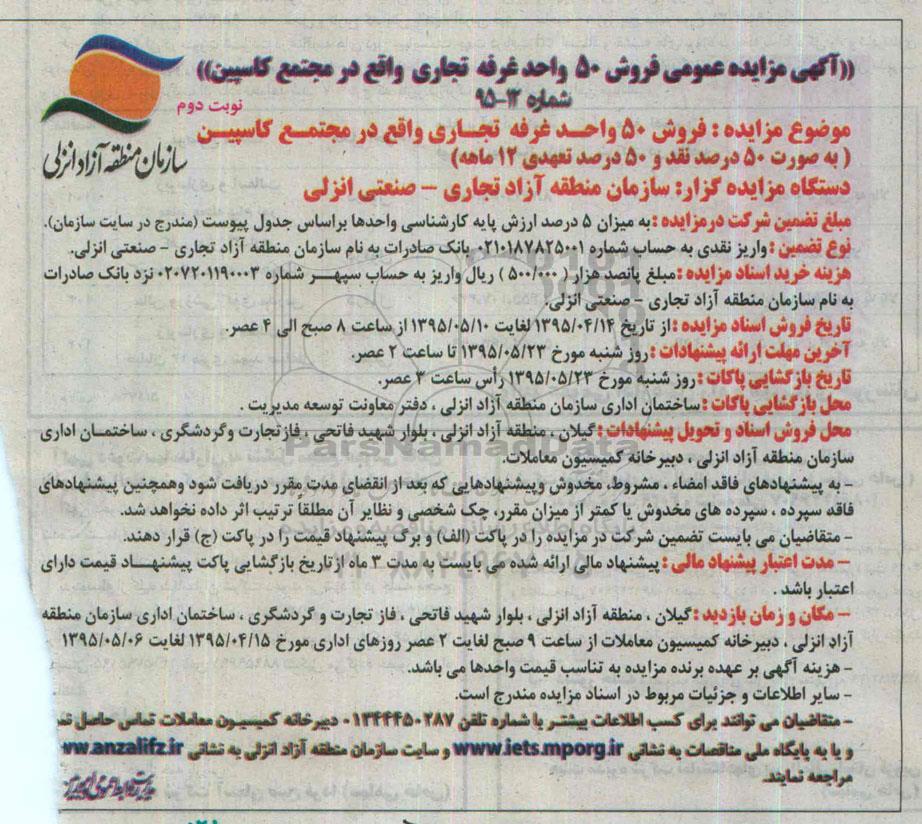 ((آگهی مزایده عمومی فروش ۵۰ واحد غرفه تجاری واقع در مجتمع کاسپین))
شماره ۱۲-۹۵
نوبت دوم
سازمان منطقه آزاد انزلی
موضوع مزایده : فروش ۵۰ واحـد غرفه تجـاری واقع در مجتمـع کاسپیـن
( به صورت ۵۰ درصد نقد و ۵۰ درصد تعهدی ۱۲ ماهه)
دستگاه مزایده گزار: سازمان منطقه آزاد تجاری – صنعتی انزلی
مبلغ تضمین شرکت درمزایده : به میزان ۵ درصد ارزش پایه کارشناسی واحدها براساس جدول پیوست (مندرج در سایت سازمان).
نوع تضمین : واریز نقدی به حساب شماره ۰۲۱۰۱۸۷۸۲۵۰۰۱ بانک صادرات به نام سازمان منطقه آزاد تجاری – صنعتی انزلی.
هزینه خرید اسناد مزایده : مبلغ پانصد هزار ( ۵۰۰/۰۰۰) ریال واریز به حساب سپهـر شماره ۰۲۰۷۲۰۱۱۹۰۰۰۳ نزد بانک صادرات
به نام سازمان منطقه آزاد تجاری – صنعتی انزلی.
تاریخ فروش اسناد مزایده : از تاریخ ۱۳۹۵/۰۴/۱۴ لغایت ۱۳۹۵/۰۵/۱۰ از ساعت ۸ صبح الی ۴ عصر.
آخرین مهلت ارائه پیشنهادات : روز شنبه مورخ ۱۳۹۵/۰۵/۲۳ تا ساعت ۲ عصر.
تاریخ بازگشایی پاکات : روز شنبه مورخ ۱۳۹۵/۰۵/۲۳ رأس ساعت ۳ عصر.
محل بازگشایی پاکات : ساختمان اداری سازمان منطقه آزاد انزلی ، دفتر معاونت توسعه مدیریت .
محل فروش اسناد و تحویل پیشنهادات : گیلان ، منطقه آزاد انزلی ، بلوار شهید فاتحی ، فاز تجارت و گردشگری ، ساختمـان اداری
سازمان منطقه آزاد انزلی ، دبیرخانه کمیسیون معاملات.
– به پیشنهادهای فاقد امضاء ، مشروط، مخدوش و پیشنهادهایی که بعد از انقضای مدت مقرر دریافت شود وهمچنین پیشنهادهای
فاقد سپرده ، سپرده های مخدوش یا کمتر از میزان مقرر، چک شخصی و نظایر آن مطلقا ترتیب اثر داده نخواهد شد.
– متقاضیان می بایست تضمین شرکت در مزایده را در پاکت (الف) و برگ پیشنهاد قیمت را در پاکت (ج) قرار دهند.
– مدت اعتبار پیشنهاد مالی : پیشنهاد مالی ارائه شده می بایست به مدت ۳ ماه از تاریخ بازگشایی پاکت پیشنهـاد قیمت دارای
اعتبار باشد .
– مکان و زمان بازدید : گیلان ، منطقه آزاد انزلی ، بلوار شهید فاتحی ، فاز تجارت و گردشگری ، ساختمان اداری سازمان منطقه
آزاد انزلی ، دبیرخانه کمیسیون معاملات از ساعت ۹ صبح لغایت ۲ عصر روزهای اداری مورخ ۱۳۹۵/۰۴/۱۵ لغایت ۱۳۹۵/۰۵/۰۶
– هزینه آگهی بر عهده برنده مزایده به تناسب قیمت واحدها می باشد.
– سایر اطلاعات و جزئیات مربوط در اسناد مزایده مندرج است.
– متقاضیان می توانند برای کسب اطلاعات بیشتـر با شماره تلفن ۰۱۳۴۴۴۵۰۲۸۷ دبیرخانه کمیسیـون معاملات تماس حاصل
و یا به پایگاه ملی مناقصات به نشانی www.iets.mporg.ir و سایت سازمان منطقه آزاد انزلی به نشانی ww.anzalifz.ir
مراجعه نمایند.
ParsNamadData